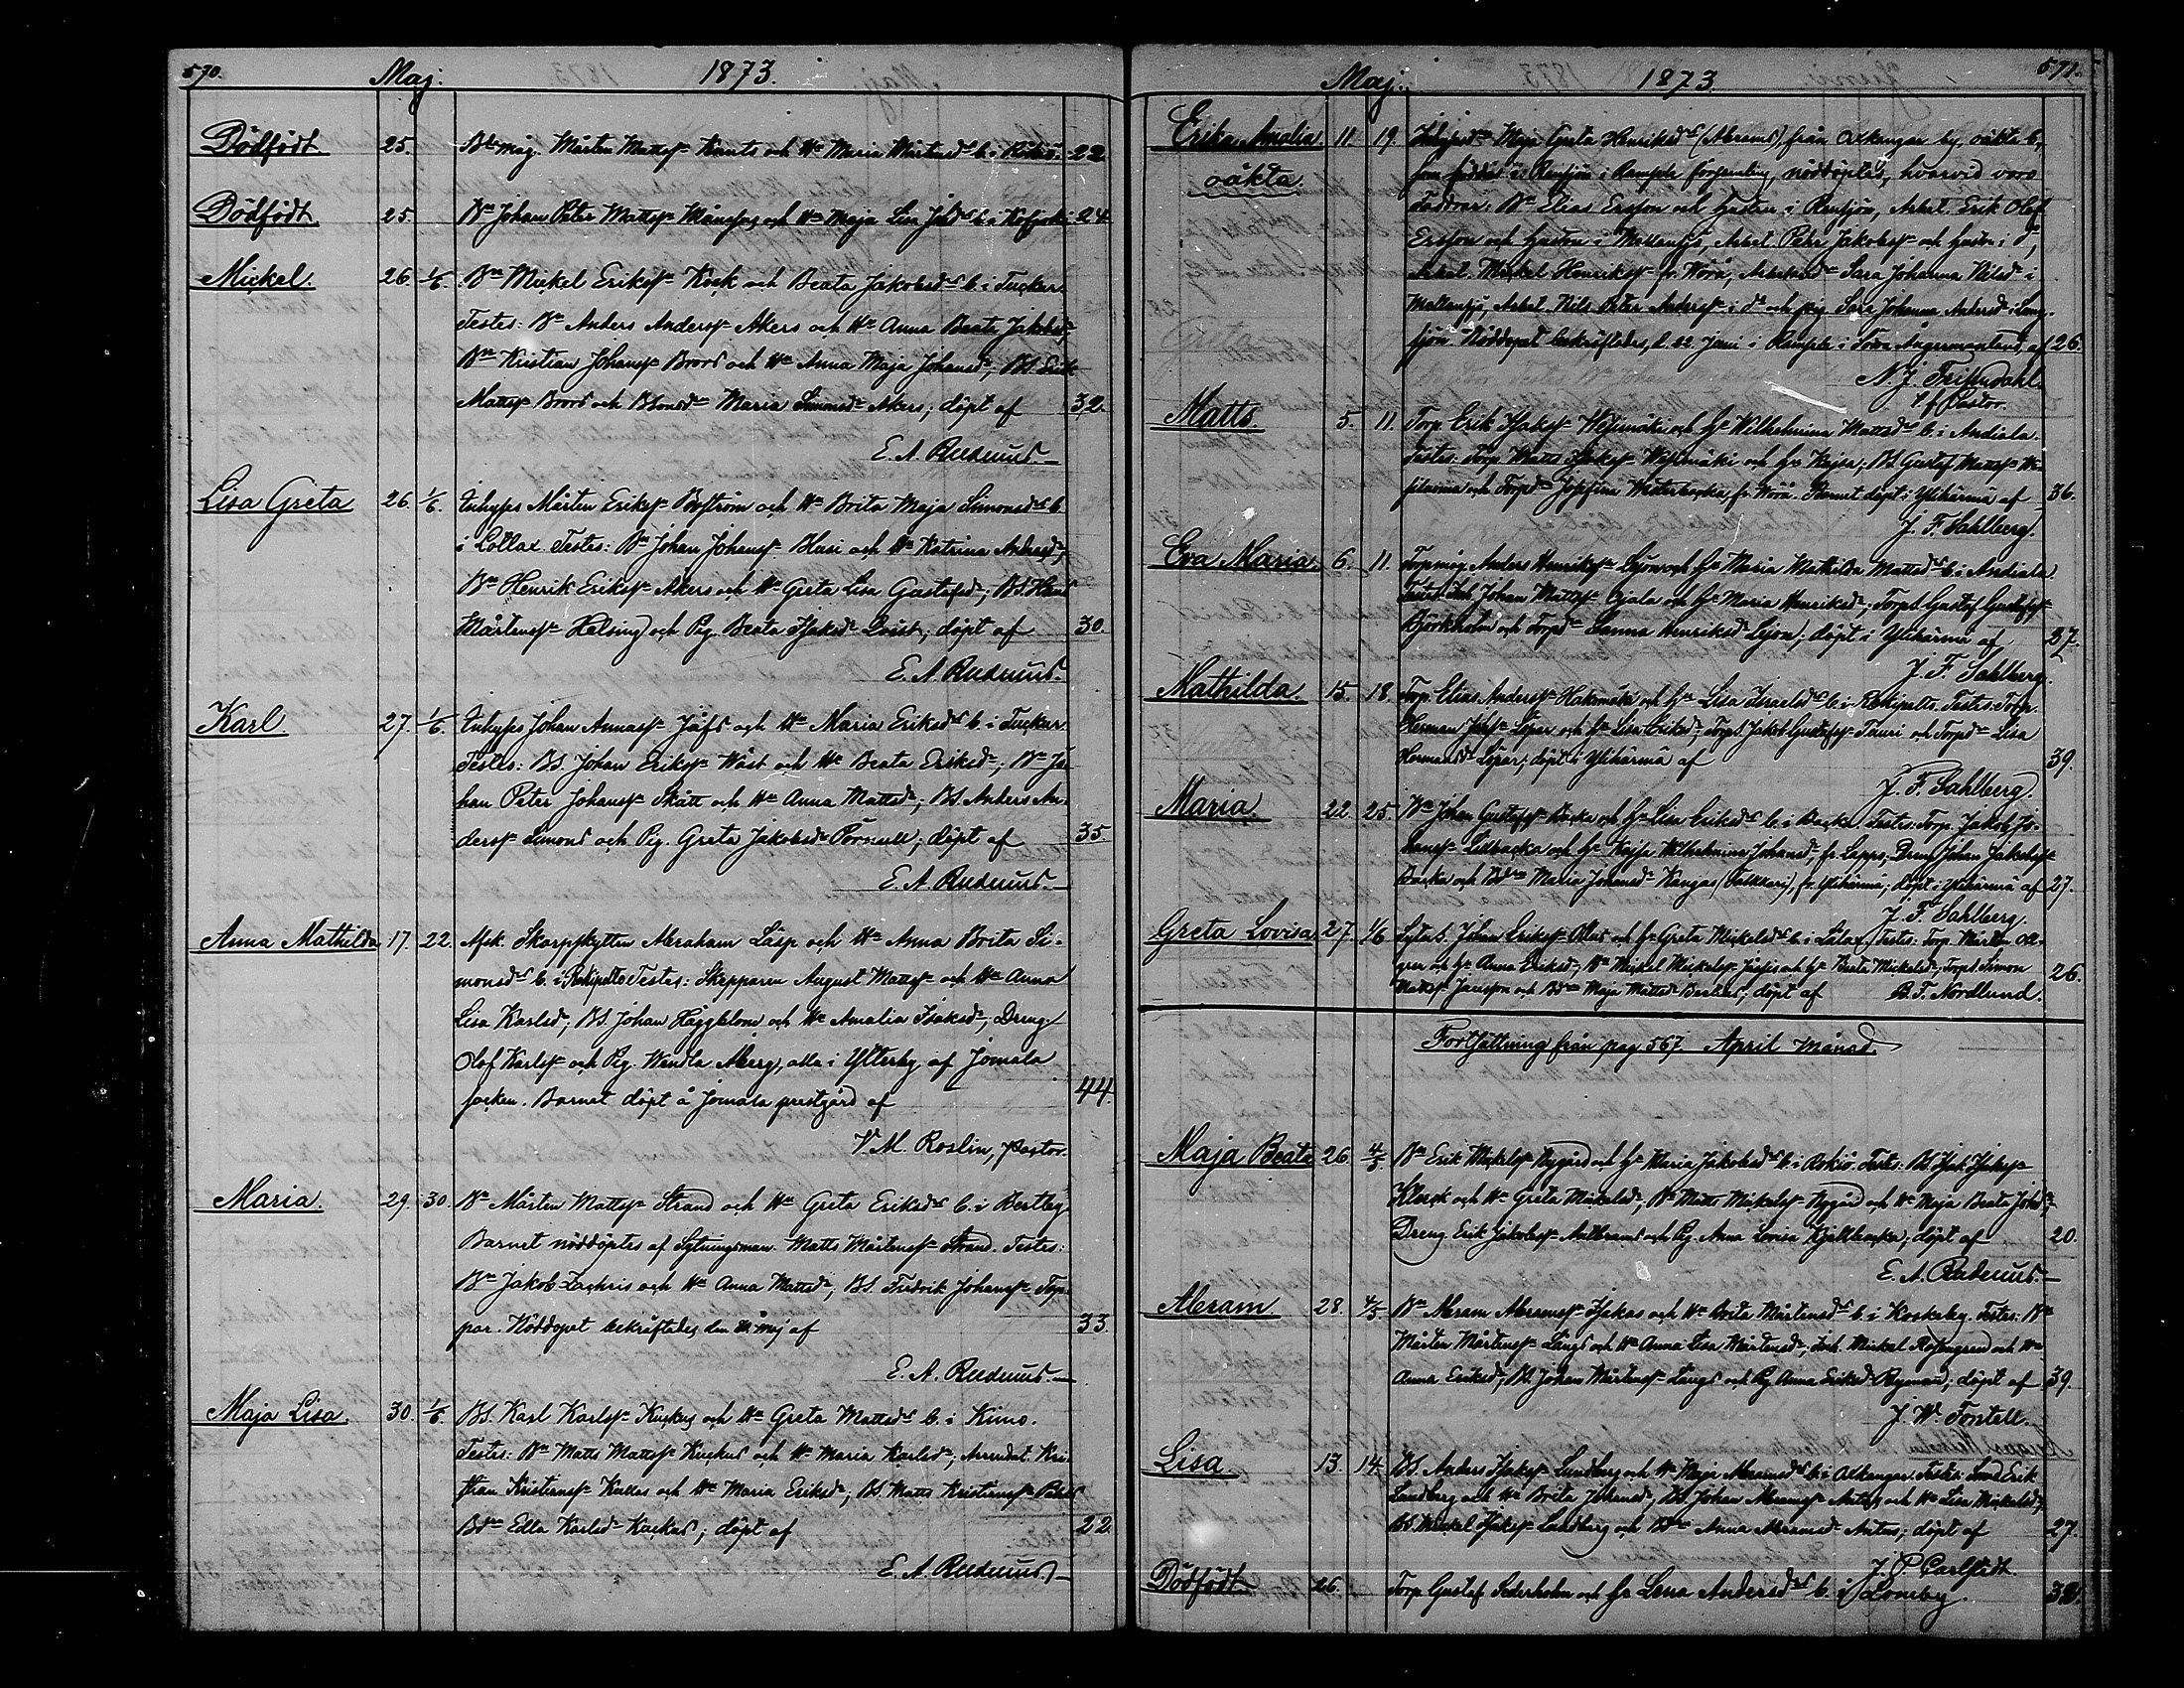 570. Maj. 1873.
Dödfödt. 25. Bdemåg. Mårten Mattss. Knuts och Hu Maria Mårtensdr b. i Rökiö. 22
Dödfödt 25. Bn Johan Peter Mattss. Månssas och Hu Maja Lisa Johsdr b. i 24
Mickel. 26. 1/6. Bn Mickel Erikss. Kock och Beata Jakobsdr b. i Tuckur.
Testes: Bn Anders Anderss. Åkers och Hu Anna Beata Jakobsdr,
Bn Kristian Johanss. Brors och Hu Anna Maja Johansdr, BS. Erik
Mattss. Brors och Maria Simonsdr Åkers; döpt af 32.
E. A. Rederius.
Lisa Greta 26. 1/6. Inhyses Mårten Erikss. Boström och Hu Brita Maja Simonsdr b.
i Lollax. Testes: Bn Johan Johanss. Husi och Hu Katrina Andersdr,
Bn Henrik Erikss. Åkers och Hu Greta Lisa Gustafsdr; BS. Hans
Mårtenss. Helsing och Pig. Beata Isaksdr döpt af 30.
E. A. Rederius.
Karl. 27. 1/6. Inhyses Johan Annass. Jåfs och Hu Maria Eriksdr b. i Tuckur
Testes: BS. Johan Erikss. Wäst och Hu Beata Eriksdr; Bn Jo-
han Peter Johanss. Skått och Hu Anna Mattsdr; BS. Anders An-
derss. Simons och Pig. Greta Jakobsdr Pörnull; döpt af 35.
E. A. Rederius.
Anna Mathilda 17. 22. Afsk. Skarpskytten Abraham Läsp och Hu Anna Brita Si-
monsdr b. i Rekipelto Testes: Skepparen August Mattss. och Hu Anna
Lisa Karlsdr; BS. Johan Häggblom och Hu Amalia Isaksdr, Dreng.
Olof Karlss. och Pig. Wendla Åberg, alla i Ytterby af Jomala
socken. Barnet döpt å Jomala prestgård af 44.
V. M. Roslin, Pastor.
Maria. 29. 30. Bn Mårten Mattss. Strand och Hu Greta Eriksdr b. i Bertby
Barnet nöddöptes af Sytningsman Matts Mårtenss. Strand. Testes:
Bn Jakob Zachris och Hu Anna Mattsdr, BS. Fredrik Johanss. Top-
par. Nöddopet bekräftades den maj af 33.
E. A. Rederius.
Maja Lisa. 30. 1/6. BS. Karl Karlss. Kuckus och Hu Greta Mattsdr b. i Kimo.
Testes: Bn Matts Mattss. Kuckus och Hu Maria Karlsdr; Arrendat. Kri-
stian Kristianss. Kullas och Hu Maria Eriksdr; BS. Matts Kristianss.
Bdr Edla Karlsdr Kuckus; döpt af 22.
E. A. Rederius.
Maj. 1873 571.
Erika Amalia 11. 19. Inhysesdr Maja Greta Henriksdr (Abrams), från Oxkangar by, oäkta b.,
oäkta. som föddes i Rensjön i Ramsele församling, nöddöptes, hvarvid voro
Faddrar: Bn Elias Ersson och hustru i Rensjön, Arbet. Erik Olof
Ersson och hustru i Arbet. Petr Jakobss. och hustru i do,
Arbet. Mickel Henrikss. fr. Wörå, Sara Johanna Nilsdr i
Arbet. Nils Peter Anderss. i do och pig. Sara Johanna Andersdr i Lång-
sjön. Nöddopet bekräftades, d. 22 Juni i Ramsele i Norra Ångermanland, af 26.
N. J. Frisendahl.
t. f. Pastor.
Matts. 5. 11. Torp. Erik Isakss. Westimäki och Hu Wilhelmina Mattsdr b. i Andiala.
Testes: Torp. Matts Isakss. Westimäki och Hu Kajsa; BS. Gustaf Mattss.
och Torpdr Josefina Westerbacka, fr. Wörå. Barnet döpt i Ylihärmä af 36.
J. F. Sahlberg.
Eva Maria 6. 11. Torpmåg Anders Henrikss. Lejon och Hu Maria Mathilda Mattsdr b. i Andiala.
Testes: Inh. Johan Mattss. Ojala och Hu Maria Henriksdr; TorpS. Gustaf Gustafss.
Björkholm och Torpdr Sanna Henriksdr Lejon; döpt i Ylihärmä af 37.
J. F. Sahlberg.
Mathilda. 15. 18. Torp. Elias Anderss. Hakomäki och Hu Lisa Israelsdr b. i Rekipelto. Testes: Torp.
Herman Johss. Löpar och Hu Lisa Eriksdr, TorpS. Jakob Gustafss. Tauri och Torpdr Lisa
Hermansdr Löpar; döpt i Ylihärmä af 39.
J. F. Sahlberg.
Maria. 22 25. Bn Johan Gustafss. Backa och Hu Lisa Eriksdr b. i Backa. Testes: Torp. Jakob Jo-
hanss. Lillbacka och Hu Kajsa Wilhelmina Johansdr, fr. Lappo; Dreng Johan Jakobss.
Backa och Bdr Maria Johansdr Kangas fr. Ylihärmä; döpt i Ylihärmä af 27.
J. F. Sahlberg.
Greta Lovisa 27 1/6 Johan Erikss. och Hu Greta Mickelsdr b. i Lålax. Testes: Torp. Mårten
och Hu Anna Eriksdr; Bn Mickel Mickelss. Jåfs och Hu Beata Mickelsdr; TorpS. Simon 26
Mattss. Jansson och Bdr Maja Mattsdr Bertils; döpt af B. F. Nordlund.
Fortsättning från pag 567. April Månad.
Maja Beata 26 4/5 Bn Erik Mickelss. Nygård och Hu Maria Jakobsdr b. i Rökiö. Testes: BS. Isak Isakss.
Klerck och Hu Greta Mickelsdr, Bn Matts Mickelss. Nygård och Hu Maja Beata Johsdr;
Dreng Erik Jakobss. och Pig. Anna Lovisa Kjällbacka; döpt af 20.
E. A. Rederius.
Abram. 28. 4/5 Bn Abram Abramss. Isakas och Hu Brita Mårtensdr b. i Koskeby. Testes: Bn
Mårten Mårtenss. Längs och Hu Anna Lisa Mårtensdr; Inh. Mickel Rosengren och Hu
Anna Eriksdr; BS. Johan Mårtenss. Längs och Pig Anna Eriksdr döpt af 39.
J. W. Fontell.
Lisa. 13. 14. BS. Anders Isakss. Lundberg och Hu Maja Abramsdr b. i Oxkangar. Testes: Erik
Lundberg och Hu Brita Johansdr, BS. Johan Abramss. Antus och Hu Lisa Mickelsdr,
BS. Mickel Isakss. Lundberg och Bdr Anna Abramsdr Antus; döpt af 27.
J. P. Carlstedt.
Dödfödt 26. Torp. Gustaf Söderholm och Hu Lena Andersdr b. i Lomby. 32.